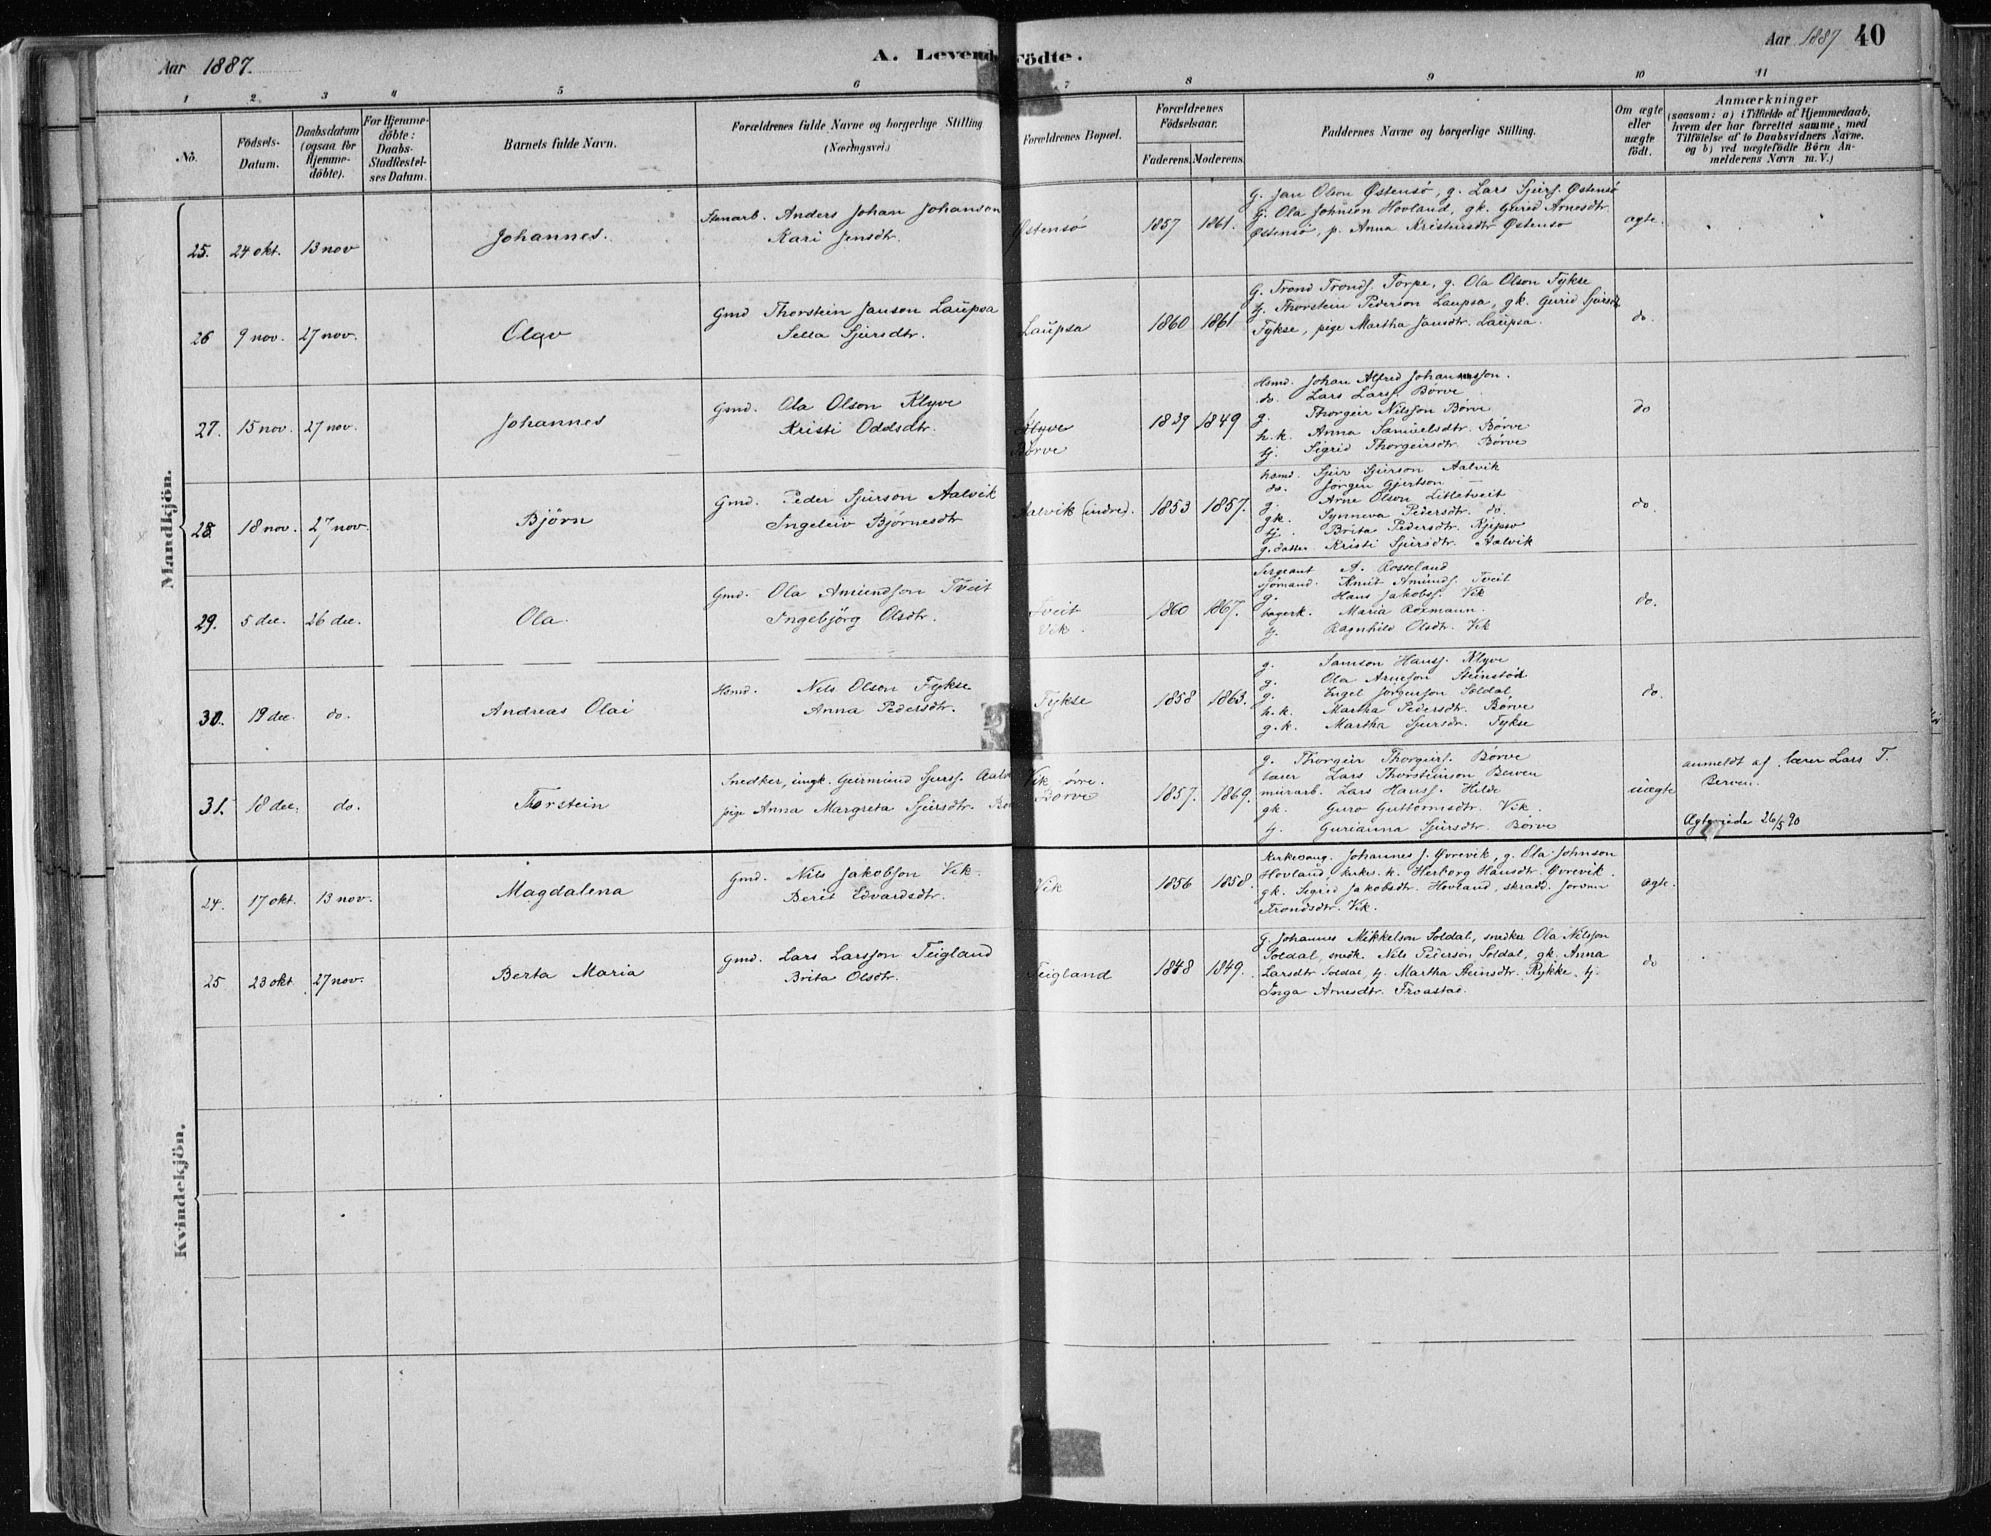 Aar 1887.
A. Levende Födte.
Aar 1887 40
1 2 3 4 5 6 7 8 9 10 11
No.
Födsels-Datum.
Daabsdatum (ogsaa for Hjemme-döbte).
For Hjemme-döbte: Daabs-Stadfæstel-ses Datum.
Barnets fulde Navn.
Forældrenes fulde Navne og borgerlige Stilling (Næringsvei.)
Forældrenes Bopæl.
Forældrenes Födselsaar.
Faderens. Moderens.
Faddernes Navne og borgerlige Stilling.
Om ægte eller uægte födt.
Anmærkninger
(saasom: a) i Tilfælde af Hjemmedaab, hvem der har forrettet samme, med Tilföielse af to Daabsvidners Navne, og b) ved uægtefödte Börn An-melderens Navn m. V.)
Mandkjön.
25. 24 okt. 13 nov Johannes. Stenarb. Anders Johan Johanson
Kari Jensdtr. Østensö 1857 1861.
G. Jan Olson Østensö, g. Lars Sjurs. Østensö
Tj. Ola Johnsen Hovland, gk. Gurid Arnesdtr.
Østensö, p. Anna Kristensdtr Østensö
ægte.
26 9 nov. 27 nov. Olav Gmd Thorstein Janson Laupsa
Sella Sjursdtr. Laupsa 1860 1861
G. Trond Tronds. Torpe, g. Ola Olson Fykse
Tj. Thorstein Pederson Laupsa, gk. Gurid Sjursdt
Fykse, pige Martha Jansdtr. Laupsa.
do.
27. 15 nov. 27 nov. Johannes Gmd. Ola Olson Klyve
Kristi Oddsdtr. Klyve
Børve 1839 1849
Hsmd. Johan Alfred Johannesson.
do. Lars Larss. Børve
g. Thorgeir Nilsson Børve
h.k. Anna Samuelsdtr. Børve
tj. Sigrid Thorgeirsdtr. Børve
do
28. 18 nov. 27 nov. Björn Gmd. Peder Sjurson Aalvik
Ingeleiv Bjørnesdtr Aalvik (indre). 1853 1857.
hsmd. Sjur Sjurson Aalvik
do. Jörgen Gjertson —
g. Arne Olson Litletveit
gk. Synneva Pedersdtr. do.
tj. Brita Pedersdtr. Kjepso
g.datter Kristi Sjursdtr. Aalvik
do.
29. 5 dec. 26 dec. Ola. Gmd. Ola Amundson Tveit
Ingebjörg Olsdtr. Tveit
Vik. 1860 1867.
Sergeant A. Rosseland
sjömand. Knut Amunds. Tveit
g. Hans Jakobss. Vik
bagerk. Maria Roxmann.
tj. Ragnhild Olsdtr. Vik
do.
30. 19 dec. do. Andreas Olai Hsmd. Nils Olson Fykse
Anna Pedersdtr. Fykse 1858 1863.
g. Samson Hanss. Klyve
g. Ola Arneson Steinstød
g. Engel Jörgenson Soldal,
h.k. Martha Pedersdtr. Børve
g.k. Martha Sjursdr. Fykse
do.
31. 18 dec. do. Thorstein Snedker, ungk. Geirmund Sjurss. Aalv
pige Anna Margreta Sjursdtr. Bør Vik øvre.
Børve 1857. 1869.
g. Thorgeir Thorgeirs. Børve
lærer Lars Thorsteinson Berven
murarb. Lars Hanss. Hilde
gk. Guro Guttormsdtr. Vik.
tj. Gurianna Sjursdtr. Børve
uægte
anmeldt af lærer Lars T.
Berven.
Ægteviede 26/5 90
Kvindekjön.
24. 17 okt. 13 nov. Magdalena Gmd. Nils Jakobson Vik.
Berit Edvardsdtr. Vik 1856 1858.
Kirkesang. Johannes J. Øvrevik, g. Ola Johnson
Hovland, kirkes. k. Herborg Hansdtr. Øvrevik.
gk. Sigrid Jakobsdtr. Hovland, skradd. Jorunn
Trondsdtr. Vik.
ægte.
25 23 okt. 27 nov. Berta Maria Gmd. Lars Larsson Teigland
Brita Olsdtr. Teigland 1848 1849.
G. Johannes Mikkelson Soldal, snedker Ola Nilsson
Soldal, snedk. Nils Pederson Soldal, gk. Anna
Larsdtr Soldal, tj. Martha Steinsdtr. Rykke, tj.
Inga Arnesdtr. Froastad.
do